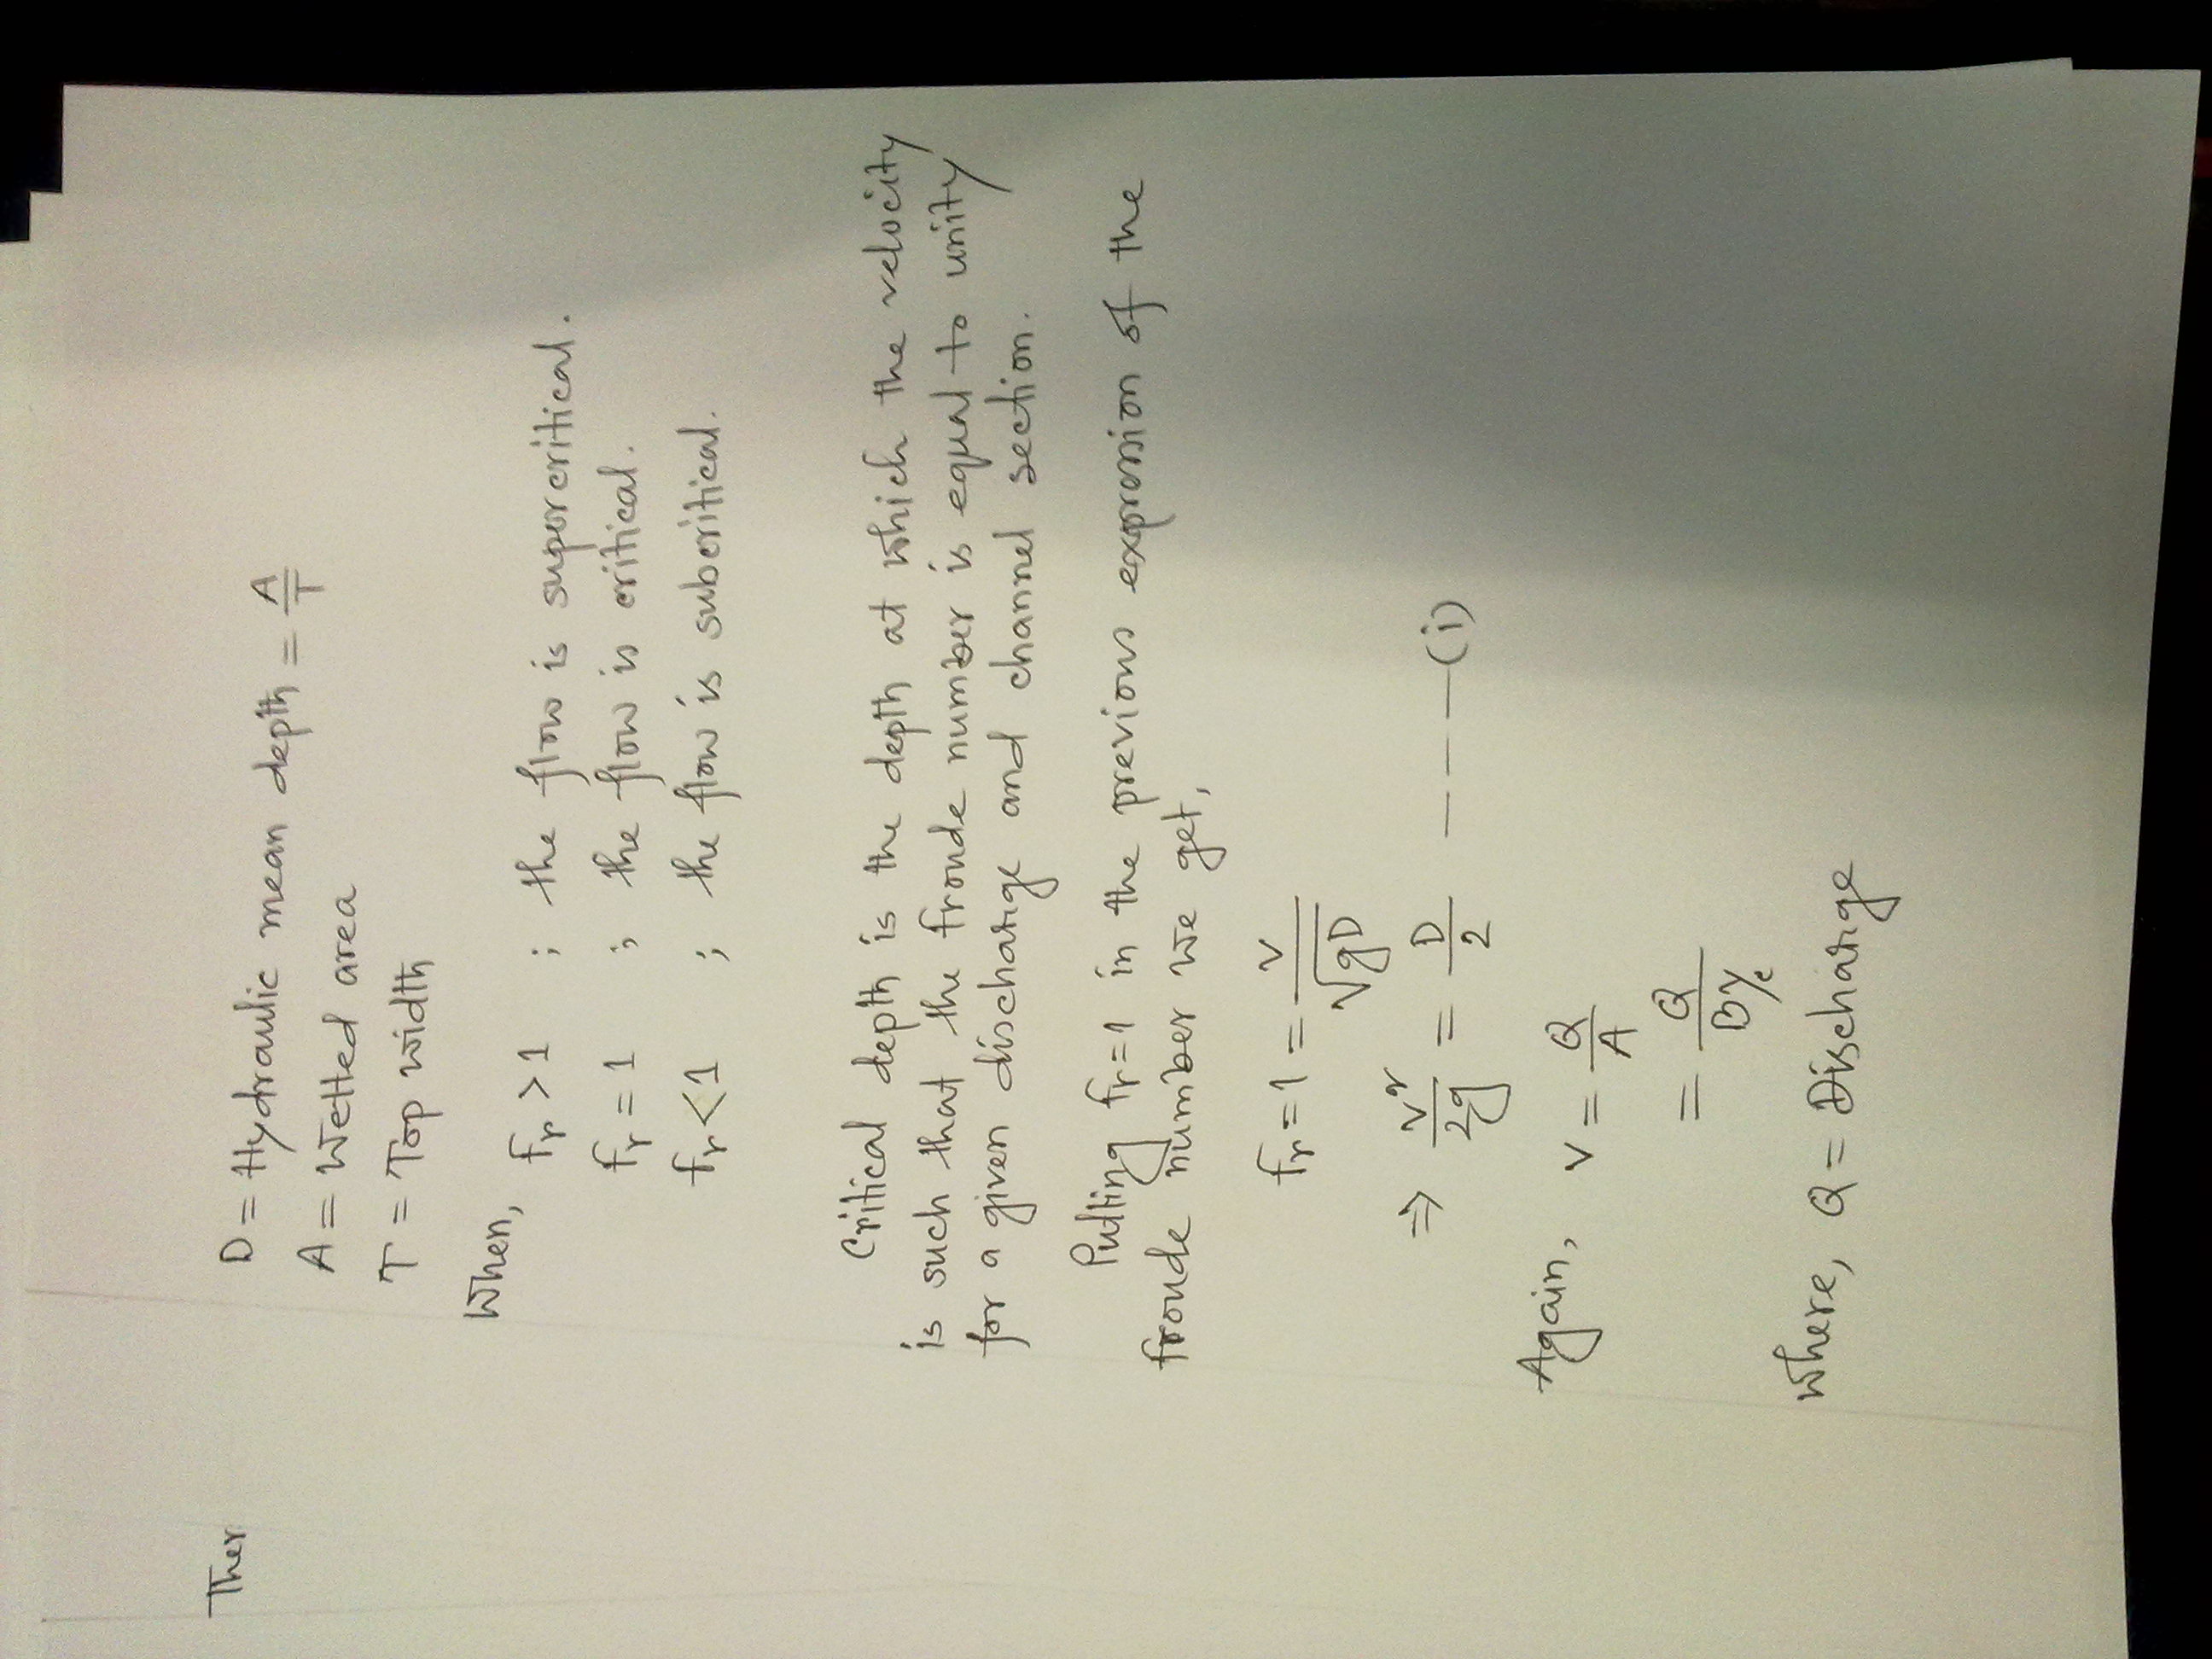 Ther
D = Hydraulic mean depth = A/T
A = Wetted area
T = Top width
When,
Fr > 1 ; the flow is supercritical.
Fr = 1 ; the flow is critical.
Fr < 1 ; the flow is subcritical.
Critical depth is the depth at which the velocity
is such that the froude number is equal to unity
for a given discharge and channel section.
Putting Fr=1 in the previous expression of the
froude number we get,
Fr = 1 = V/√gD
⇒ V²/2g = D/2 - - - (i)
Again, V = Q/A
= Q/Byc
Where, Q = Discharge